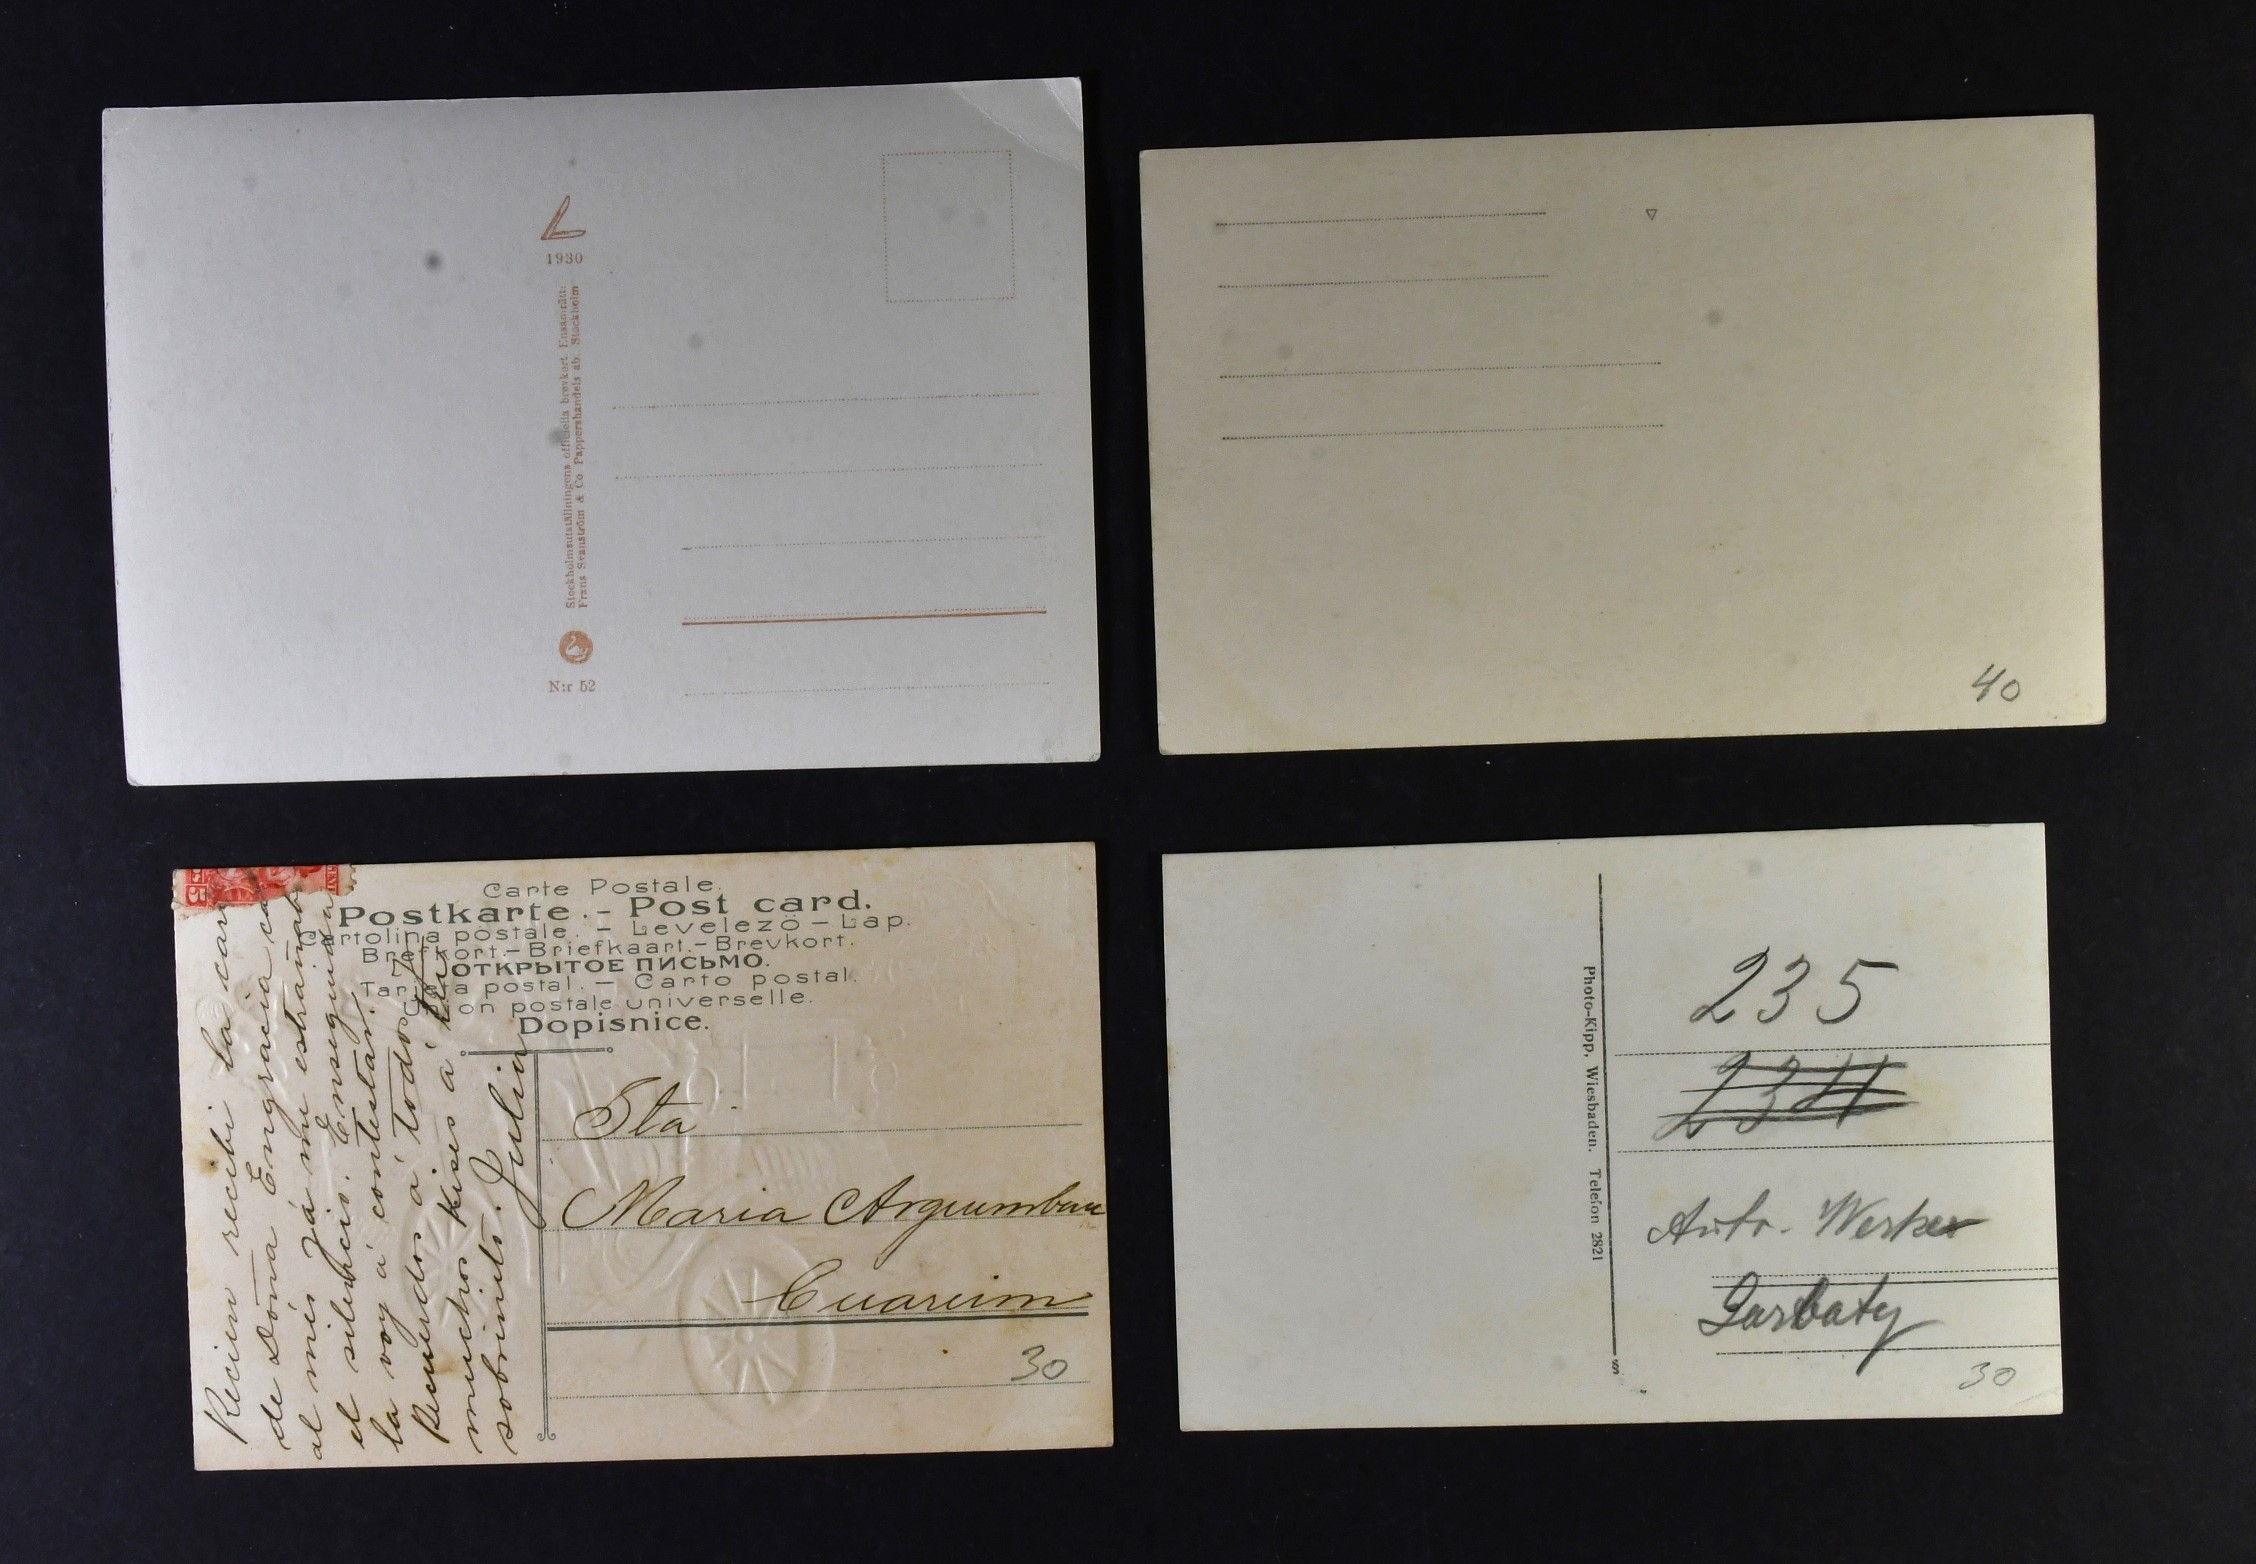 1930
Stockholmsutställningens officiella brevkort Ensamrätt:
Frans Svanström & Co Pappershandels ab. Stockholm
N:r 52
40
Carte Postale.
Postkarte. - Post card.
Cartolina postale. - Levelezö - Lap.
Brefkort. - Briefkaart. - Brevkort.
открытое письмо.
Tarjeta postal. - Carto postal.
Union postale universelle.
Dopisnice.
Recien recibi la
de Doña Engracia
al mis já me estrañaba
el silencio. Enseguida
la voy á contestar.
Recuerdos á todos
muchos kises á
sobrinito. Julia
Sta
Maria Argumbau
Cuareim
30
Photo-Kipp, Wiesbaden. Telefon 2821
235
234
Auto-Werker
Garbaty
30